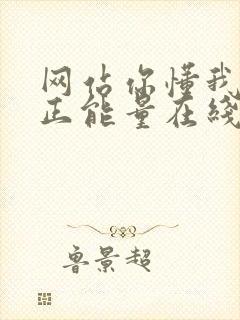 网站你懂我
正能量在线
鲁景超